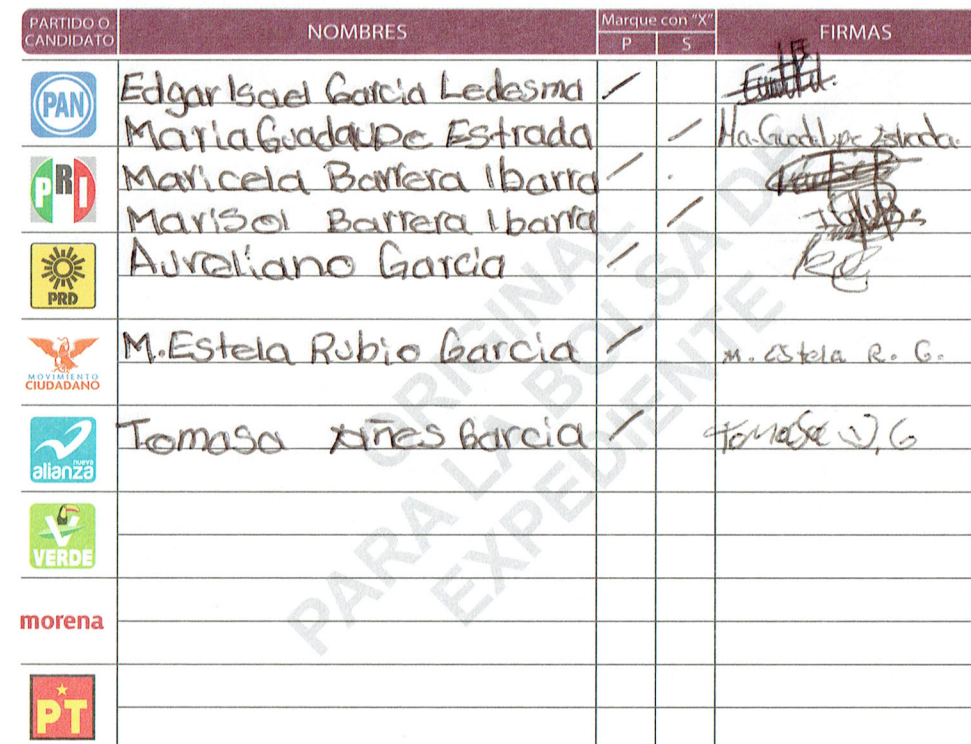 PARTIDO O CANDIDATO NOMBRES Marque con "X" P S FIRMAS
PAN Edgar Isael Garcia Ledesma /
Maria Guadalupe Estrada / Ma. Guadalupe Estrada.
PRI Maricela Barrera Ibarra /
Marisol Barrera Ibarra /
PRD Aureliano Garcia /
MOVIMIENTO CIUDADANO M. Estela Rubio Garcia / M. Estela R. G.
nueva alianza Tomasa Garcia / Tomasa G
VERDE
morena
PT
ORIGINAL
PARA LA BOLSA DE
EXPEDIENTE